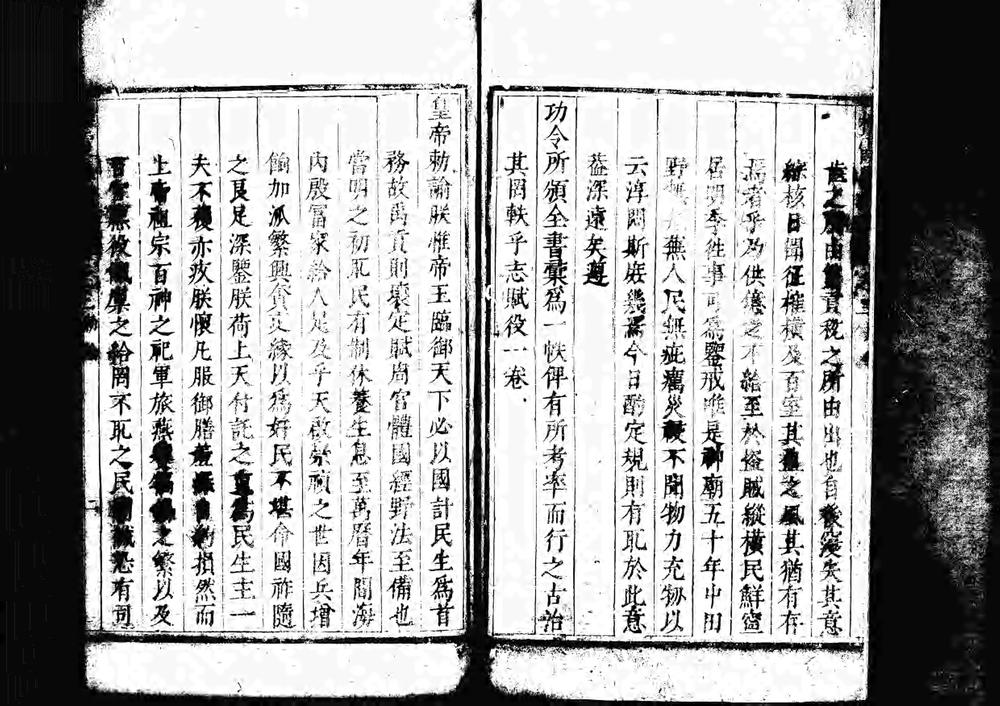 之所由 賣稅之所由出也自 後 失其意
綜核日 征榷橫及百室其 之風其猶有存
焉者乎乃供億之不給至於盜賊縱橫民鮮寧
居明季徃事可爲鑒戒唯是神廟五十年中田
野無 蕪人民無疵癘災祲不聞物力充牣以
云淳悶斯庶幾焉今日酌定規則有取於此意
葢深遠矣遵
功令所頒全書彙爲一帙俾有所考率而行之古治
其罔軼乎志賦役一卷
皇帝勅諭朕惟帝王臨御天下必以國計民生爲首
務故禹貢則壤定賦周官體國經野法至備也
當明之初取民有制休養生息至萬曆年間海
內殷富家給人足及乎天啟崇禎之世因兵增
餉加派繁興貪吏緣以爲奸民不堪命國祚隨
之良足深鑒朕荷上天付託之重爲民生主一
夫不獲亦疚朕懷凡服御膳羞深自約損然而
上帝祖宗百神之祀軍旅燕饗犒錫之繁以及
百官庶役 之給罔不取之民 恐有司